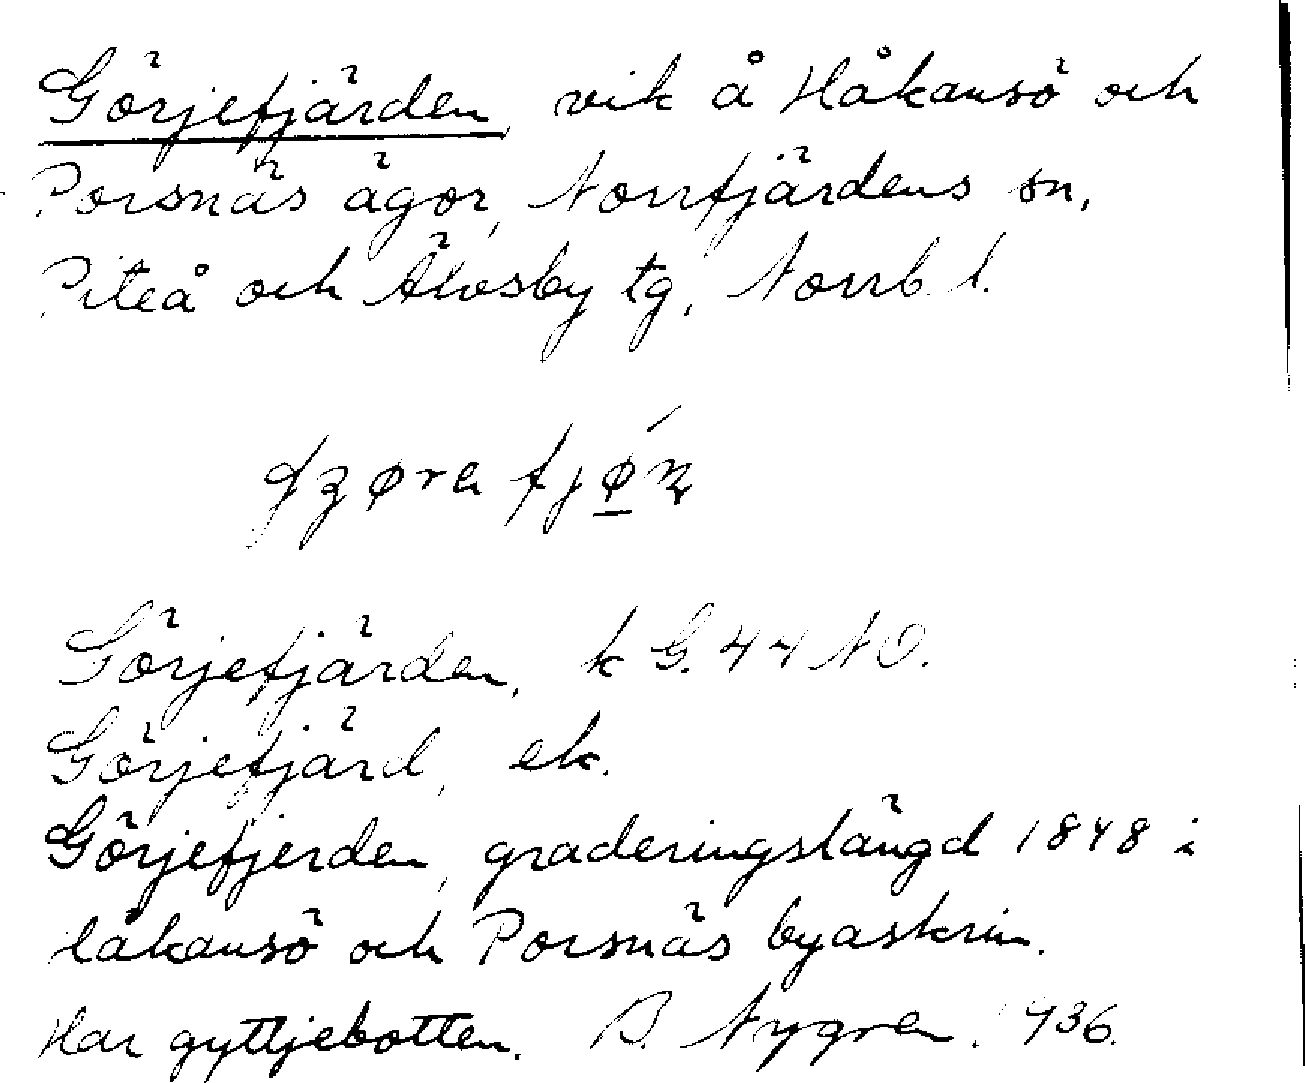 Görjefjärden, vik å Håkansö och
Porsnäs ägor, Norrfjärdens sn,
Piteå och Älvsby tg, Norrb. l.
fjǿn
Görjefjärden, k G. 44 NO.
Görjefjärd, ek.
Görjefjerden, graderingslängd 1848 i
Håkansö och Porsnäs byaskrin.
Har gyttjebotten. B. Nygren. 1936.